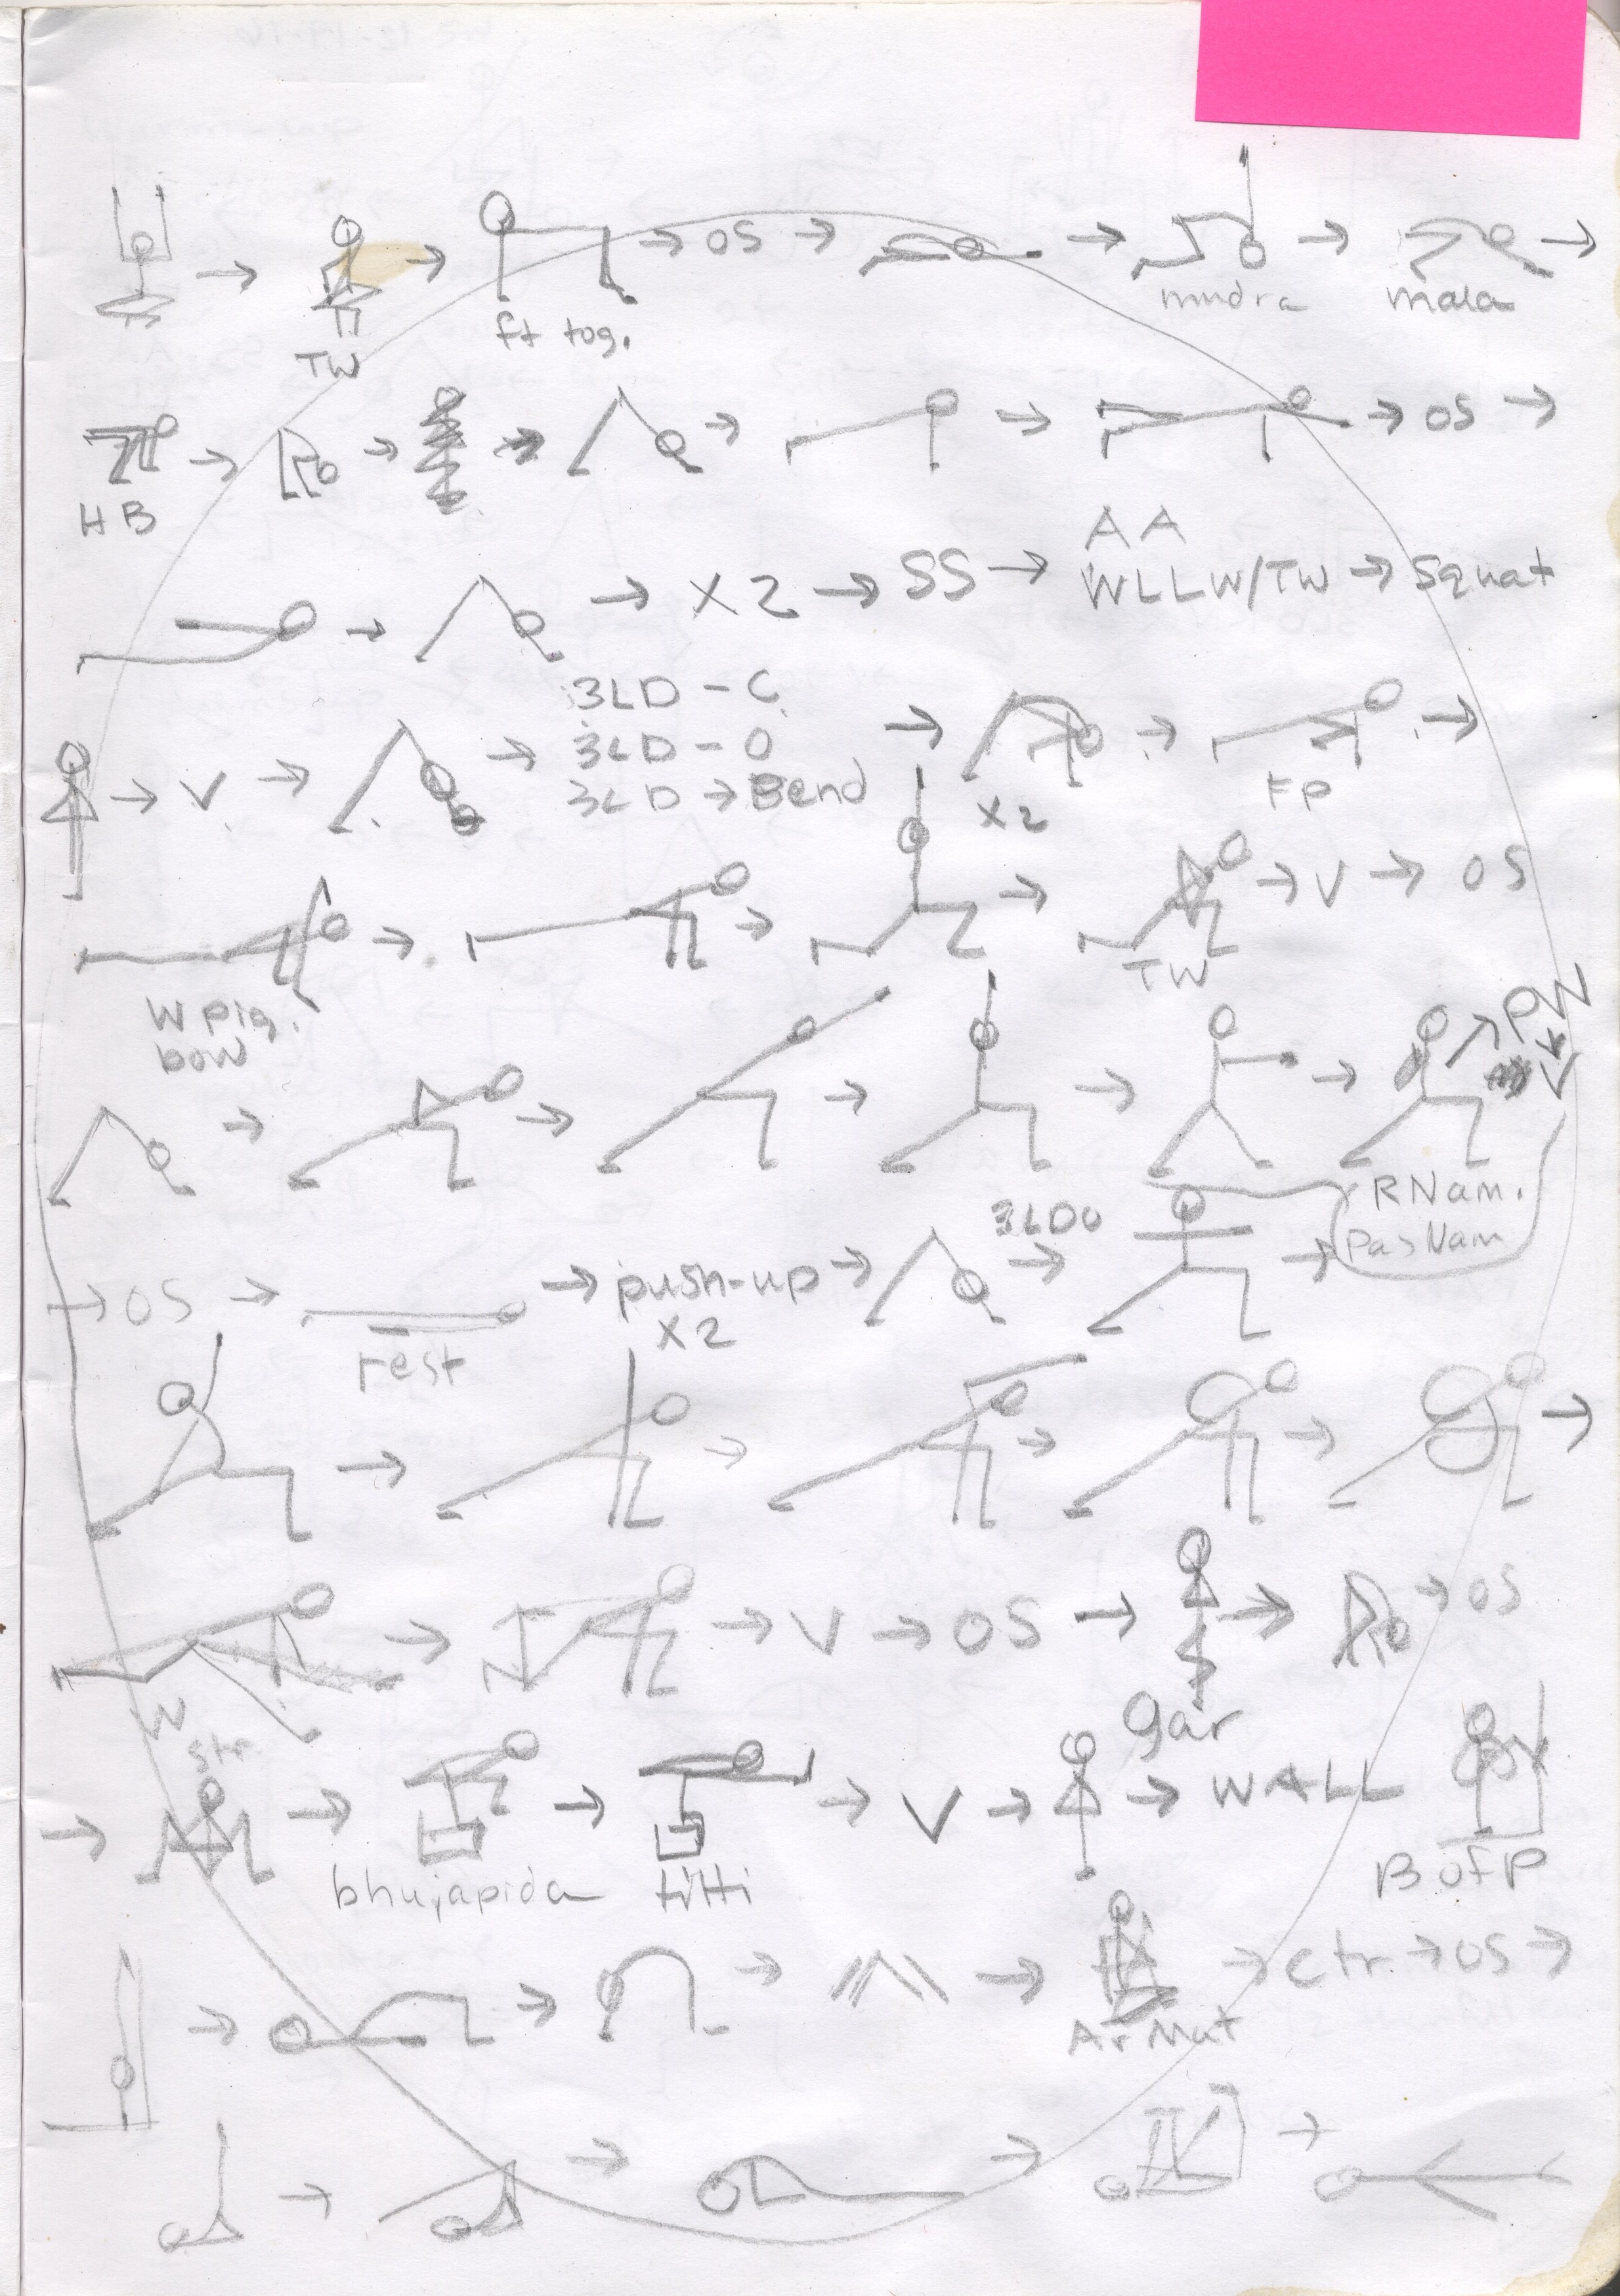 → → → OS → → →
TW ft tog. mudra mala
→ → → → → → OS →
HB
→ → X2 → SS → AA
WLLW/TW → Squat
3LD - C
→ V → → 3LD - O → →
3LD → Bend X2 FP
→ → → → V → OS
W pig. TW
bow
→ → → → → PW
↓
V
RNam.
→ OS → → push-up → → 3LDO → PasNam
rest X2
→ → → → →
→ → V → OS → → → OS
W gar
str.
→ → → → V → → WALL
bhujapida titti B of P
→ → → → → ctr. → OS →
Ar Mat
→ → → →